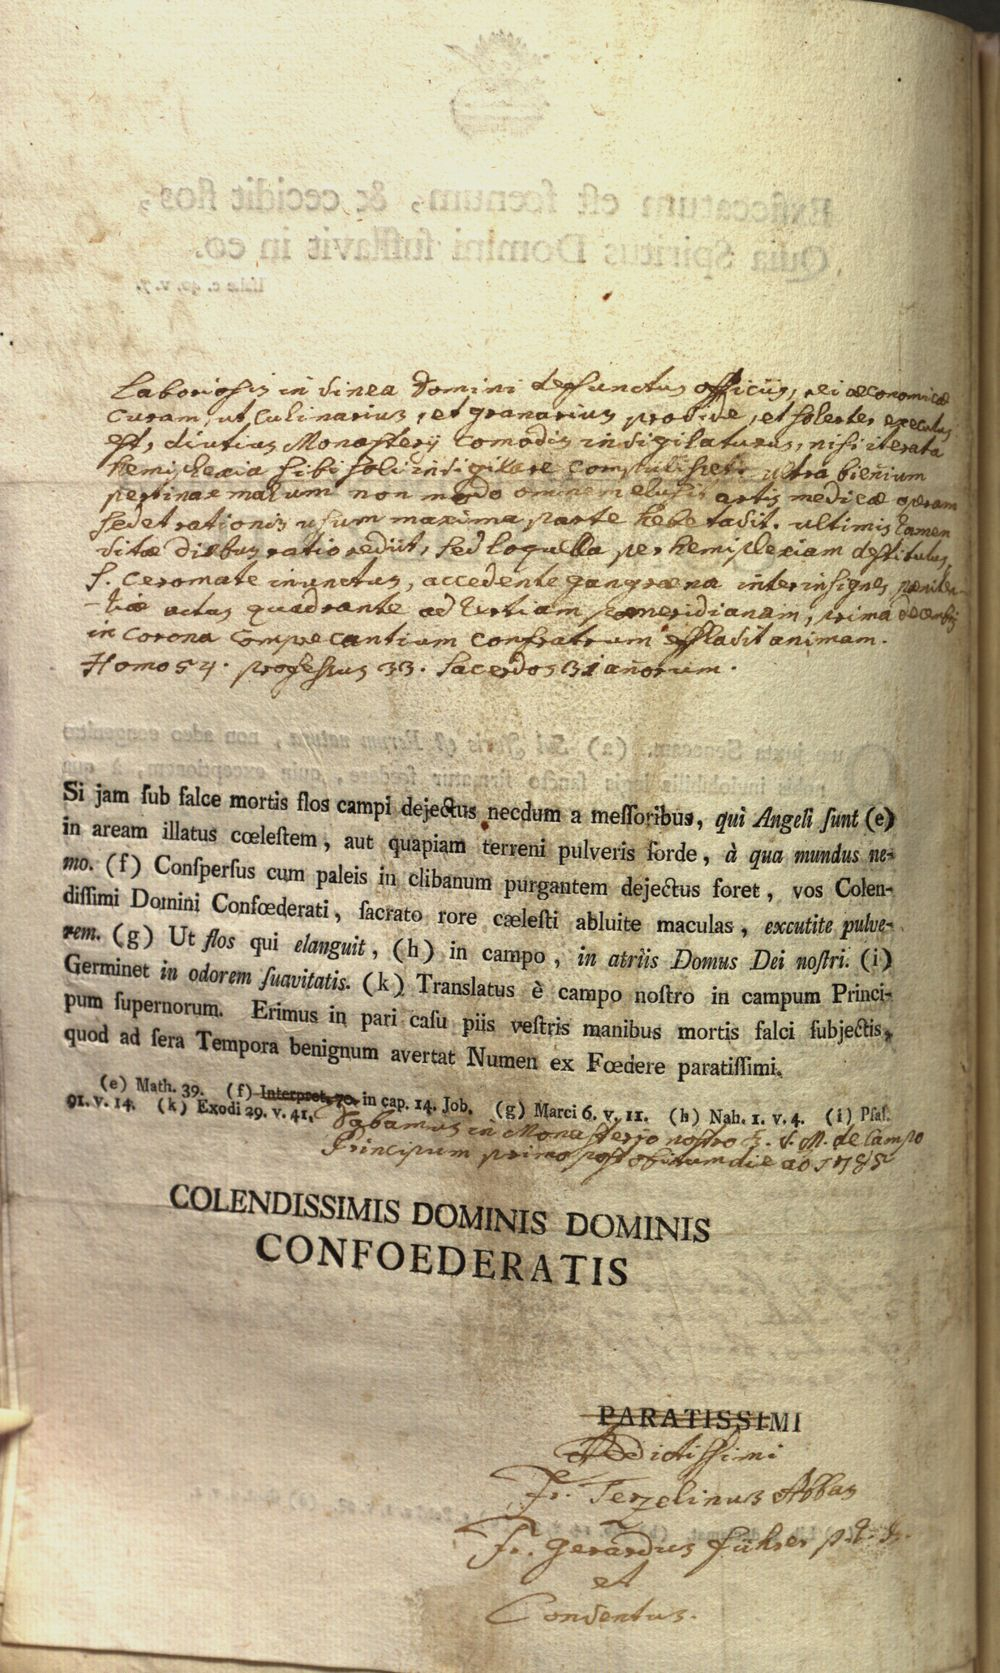 Laboriosis in vinea Domini defunctus officiis, rei œconomicæ
curam, ut Culinarius, et granarius provide, et solerter executus
est, diutius Monasterij Comodis invigilaturus, nisi iterata
hemiplexia sibi soli invigilare compulisset. ultra bieñium
pertinax malum non modo omnem elusit artis medicæ operam
sed et rationis usum maxima parte hebetavit. ultimis tamen
vitæ diebus ratio rediit, sed loquella per hemiplexiam destitutus,
S. Ceromate inunctus, accedente gangræna inter insignes pœniten-
-tiæ actus quadrante ad tertiam pomeridianam, prima decembris
in Corona Comprecantium Confratrum efflavit animam.
Homo 54. professus 33. Sacerdos 31 añorum.
Si jam ſub falce mortis flos campi dejectus necdum a meſſoribus, qui Angeli ſunt (e)
in aream illatus cœleſtem, aut quapiam terreni pulveris ſorde, à qua mundus ne-
mo. (f) Conſperſus cum paleis in clibanum purgantem dejectus foret, vos Colen-
diſſimi Domini Confœderati, ſacrato rore cæleſti abluite maculas, excutite pulve-
rem. (g) Ut flos qui elanguit, (h) in campo, in atriis Domus Dei noſtri. (i)
Germinet in odorem ſuavitatis. (k) Translatus è campo noſtro in campum Princi-
pum ſupernorum. Erimus in pari caſu piis veſtris manibus mortis falci ſubjectis,
quod ad ſera Tempora benignum avertat Numen ex Fœdere paratiſſimi.
(e) Math. 39. (f) Interpret. 70. in cap. 14. Job. (g) Marci 6. v. 11. (h) Nah. 1. v. 4. (i) Pſal.
91. v. 14. (k) Exodi 29. v. 41.
Dabamus in Monasterio nostro B. V. M. de Campo
Principum primo post obitum die ao 1785
COLENDISSIMIS DOMINIS DOMINIS
CONFOEDERATIS
PARATISSIMI
Addictissimi
Fr. Tezelinus Abbas
Fr. Gerardus Führer p. t.
et
Conventus.